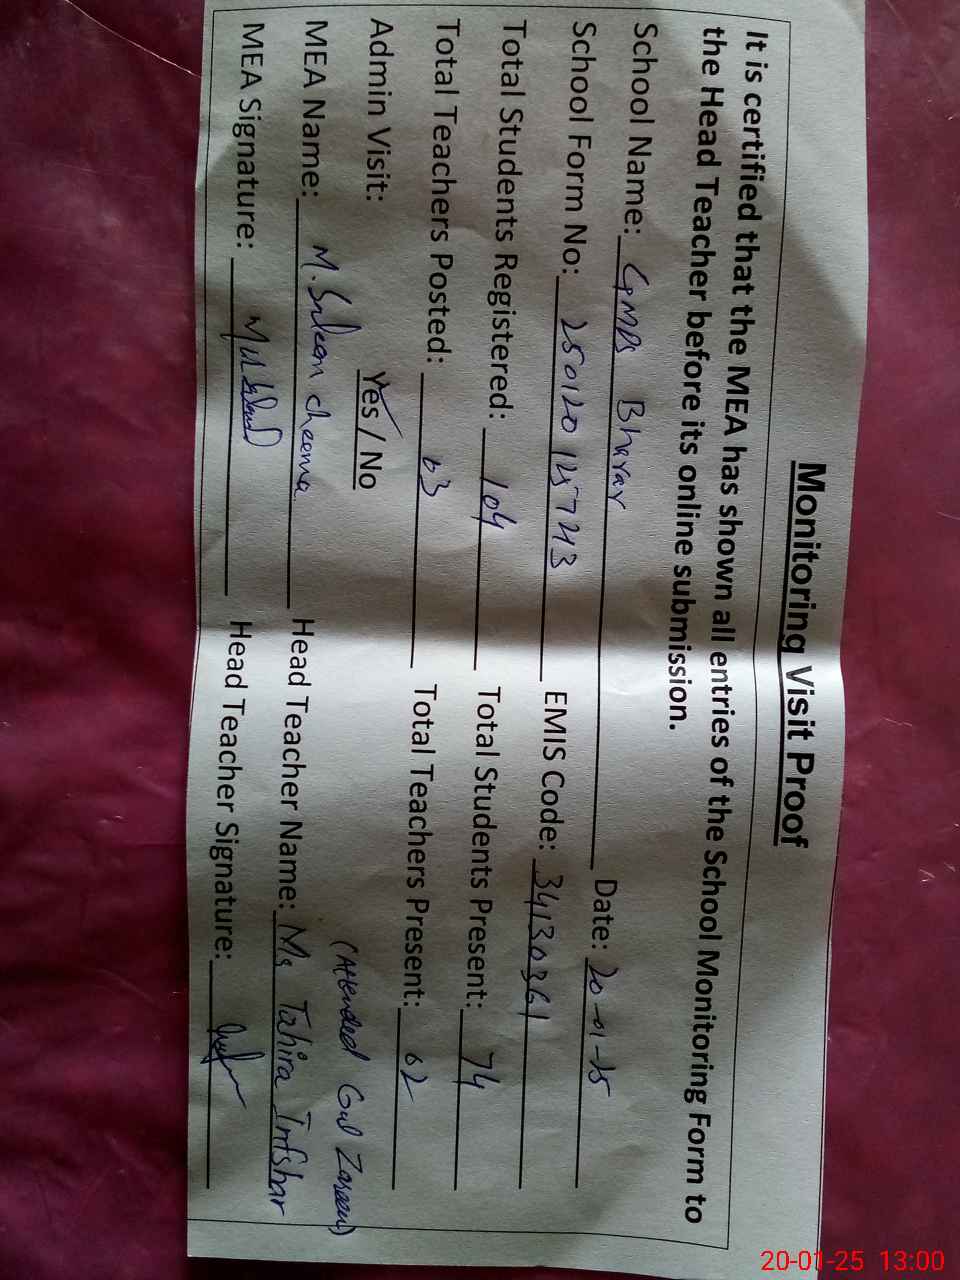 Monitoring Visit Proof
It is certified that the MEA has shown all entries of the School Monitoring Form to
the Head Teacher before its online submission.
School Name: GMPS Bharay Date: 20-01-25
School Form No: 250120125743 EMIS Code: 34130361
Total Students Registered: 104 Total Students Present: 74
Total Teachers Posted: 03 Total Teachers Present: 02
Admin Visit: Yes / No (Attended Gul Zareen)
MEA Name: M. Saleem cheema Head Teacher Name: Ms Tahira Infshar
MEA Signature: Head Teacher Signature:
20-01-25 13:00